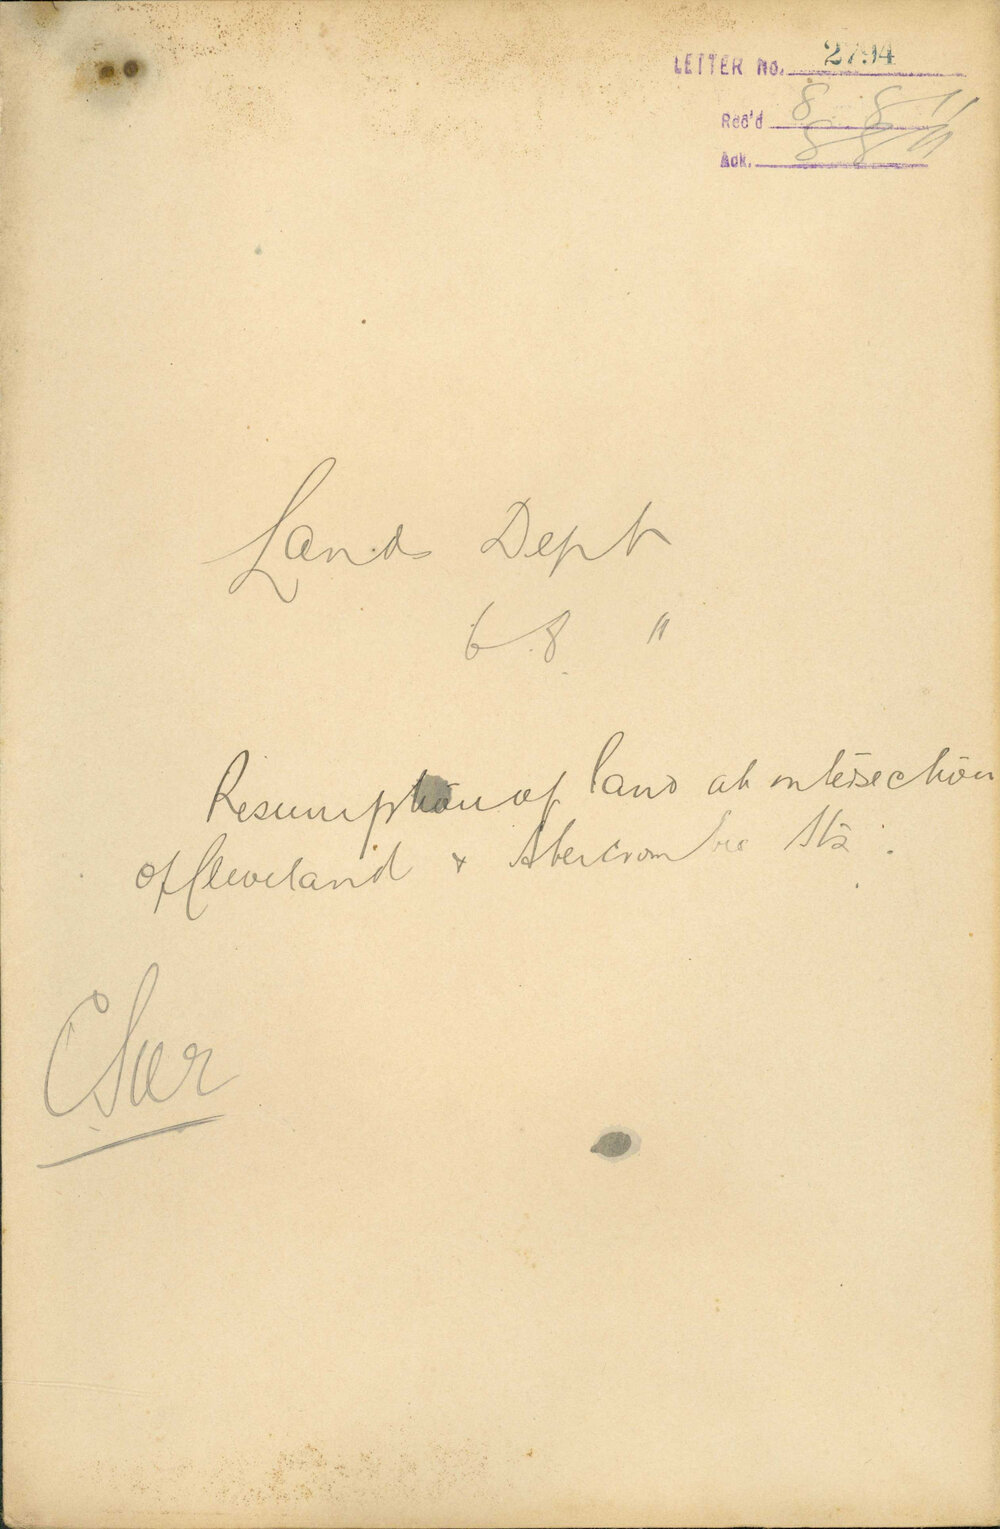 LETTER No. 2794
Rec'd 8 8 11
Ack. 8 8 11
Lands Dept
6 8 11
Resumption of land at intersection
of Cleveland & Abercrombie Sts.